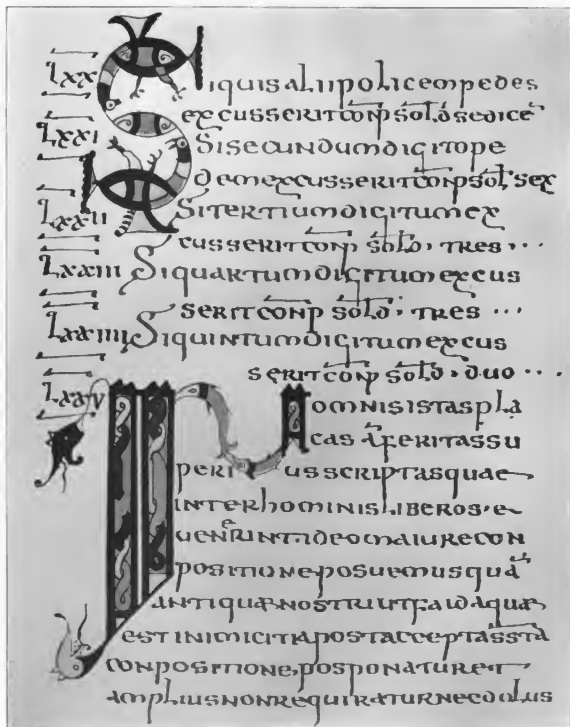 LXX Siquisaliipolicempedes
excusseritconp sold sedicē
LXXI Sisecundumdigitope
demexcusseritconp sol sex
LXXII Sitertiumdigitumex
cusseritconp sold · tres ···
LXXIII Siquartumdigitumexcus
seritconp sold · tres ···
LXXIIII Siquintumdigitumexcus
seritconp sold · duo ···
LXXV INomnisistaspla
cas aferitassu
periusscriptasquae
interhominisliberos · e
uenerint · ideomaiurecon
positioneposuemusquā
antiquænostriutfaidaquæ
estinimicitiapostacceptāsstā
conpositione, posponaturet
ampliusnonrequiraturnecdolus